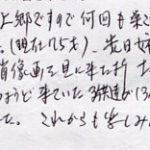 上郷ですので何回も来
。(現在75才)、先日
肖像画を見に来た折
ちょうど来ていた3
た。これからも楽しみ